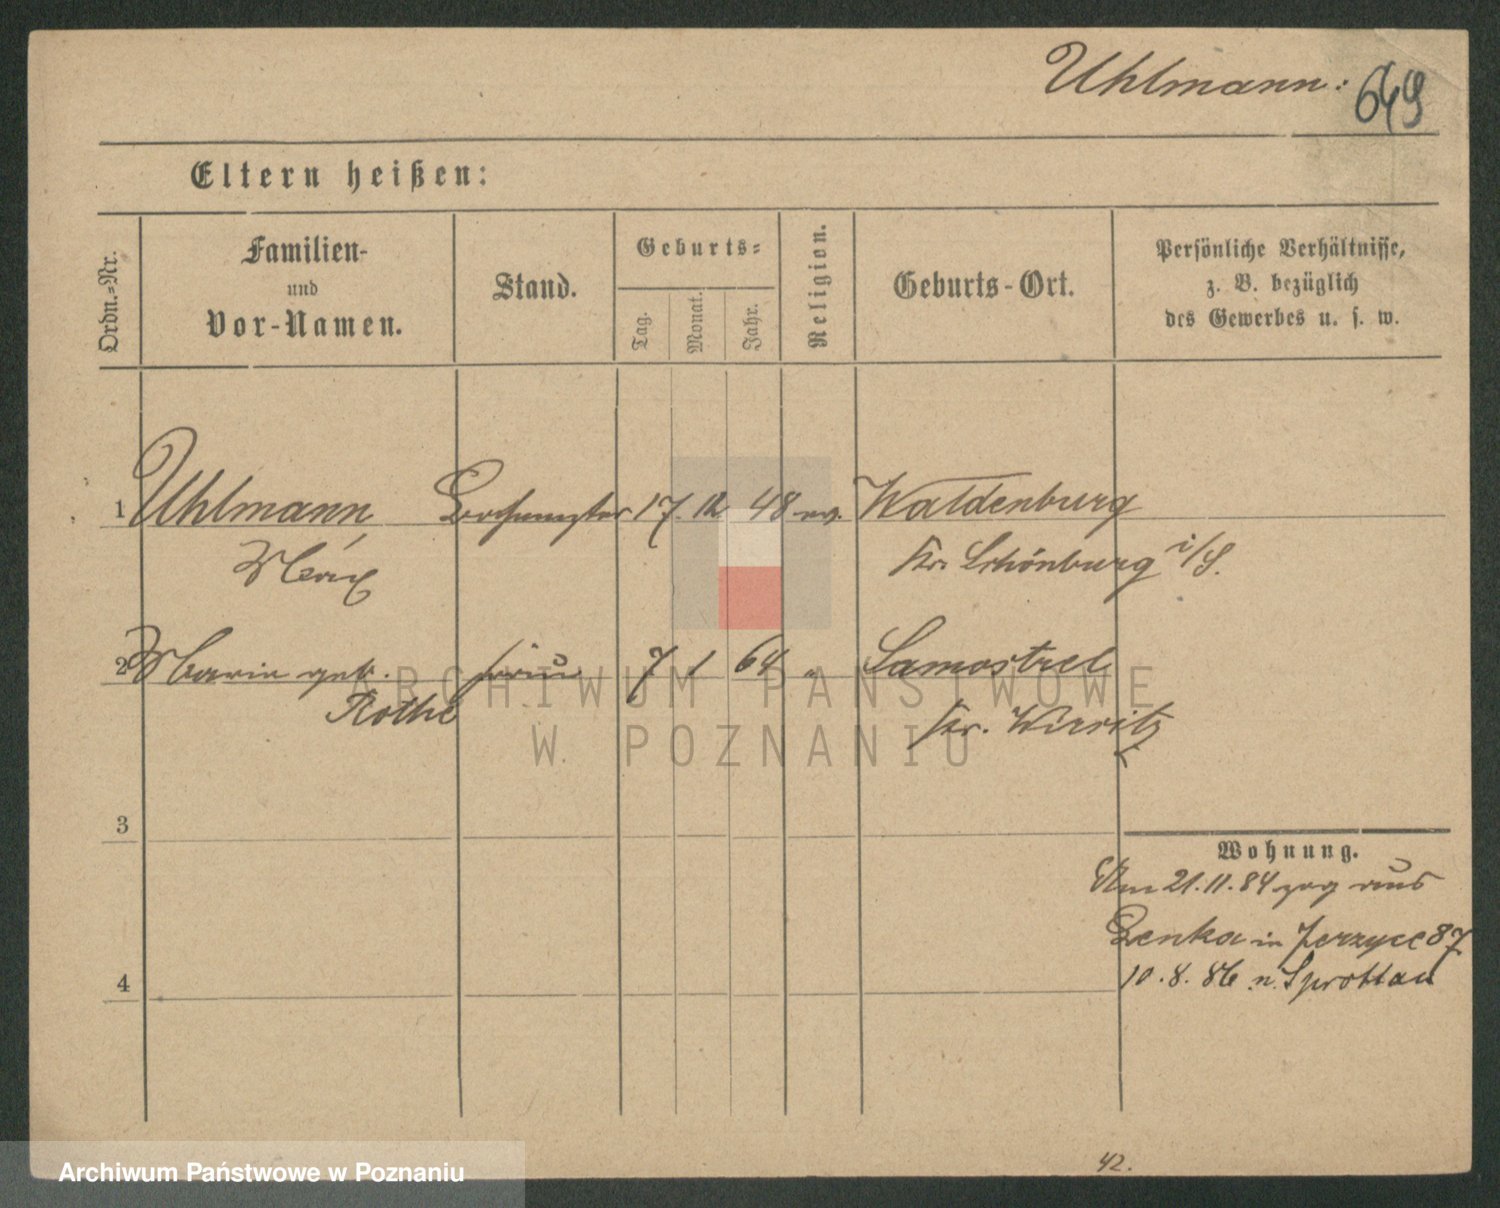 Uhlmann: 649
Eltern heißen:
Ordn.-Nr.
Familien-
und
Vor-Namen.
Stand.
Geburts-
Tag.
Monat.
Jahr.
Religion.
Geburts-Ort.
Persönliche Verhältnisse,
z. B. bezüglich
des Gewerbes u. s. w.
1 Uhlmann, 17. 12 48 ev. Waldenburg
Max Kr. Schönburg i/S.
2 Marie geb. Frau 7 1 64 " Samostrel
Rothe Kr. Wirsitz
3
Wohnung.
Am 21.11.84 zog aus
Zenka in Jerzyce 87
4
10.8.86 n. Sprottau
42.
ARCHIWUM PAŃSTWOWE
W POZNANIU
Archiwum Państwowe w Poznaniu